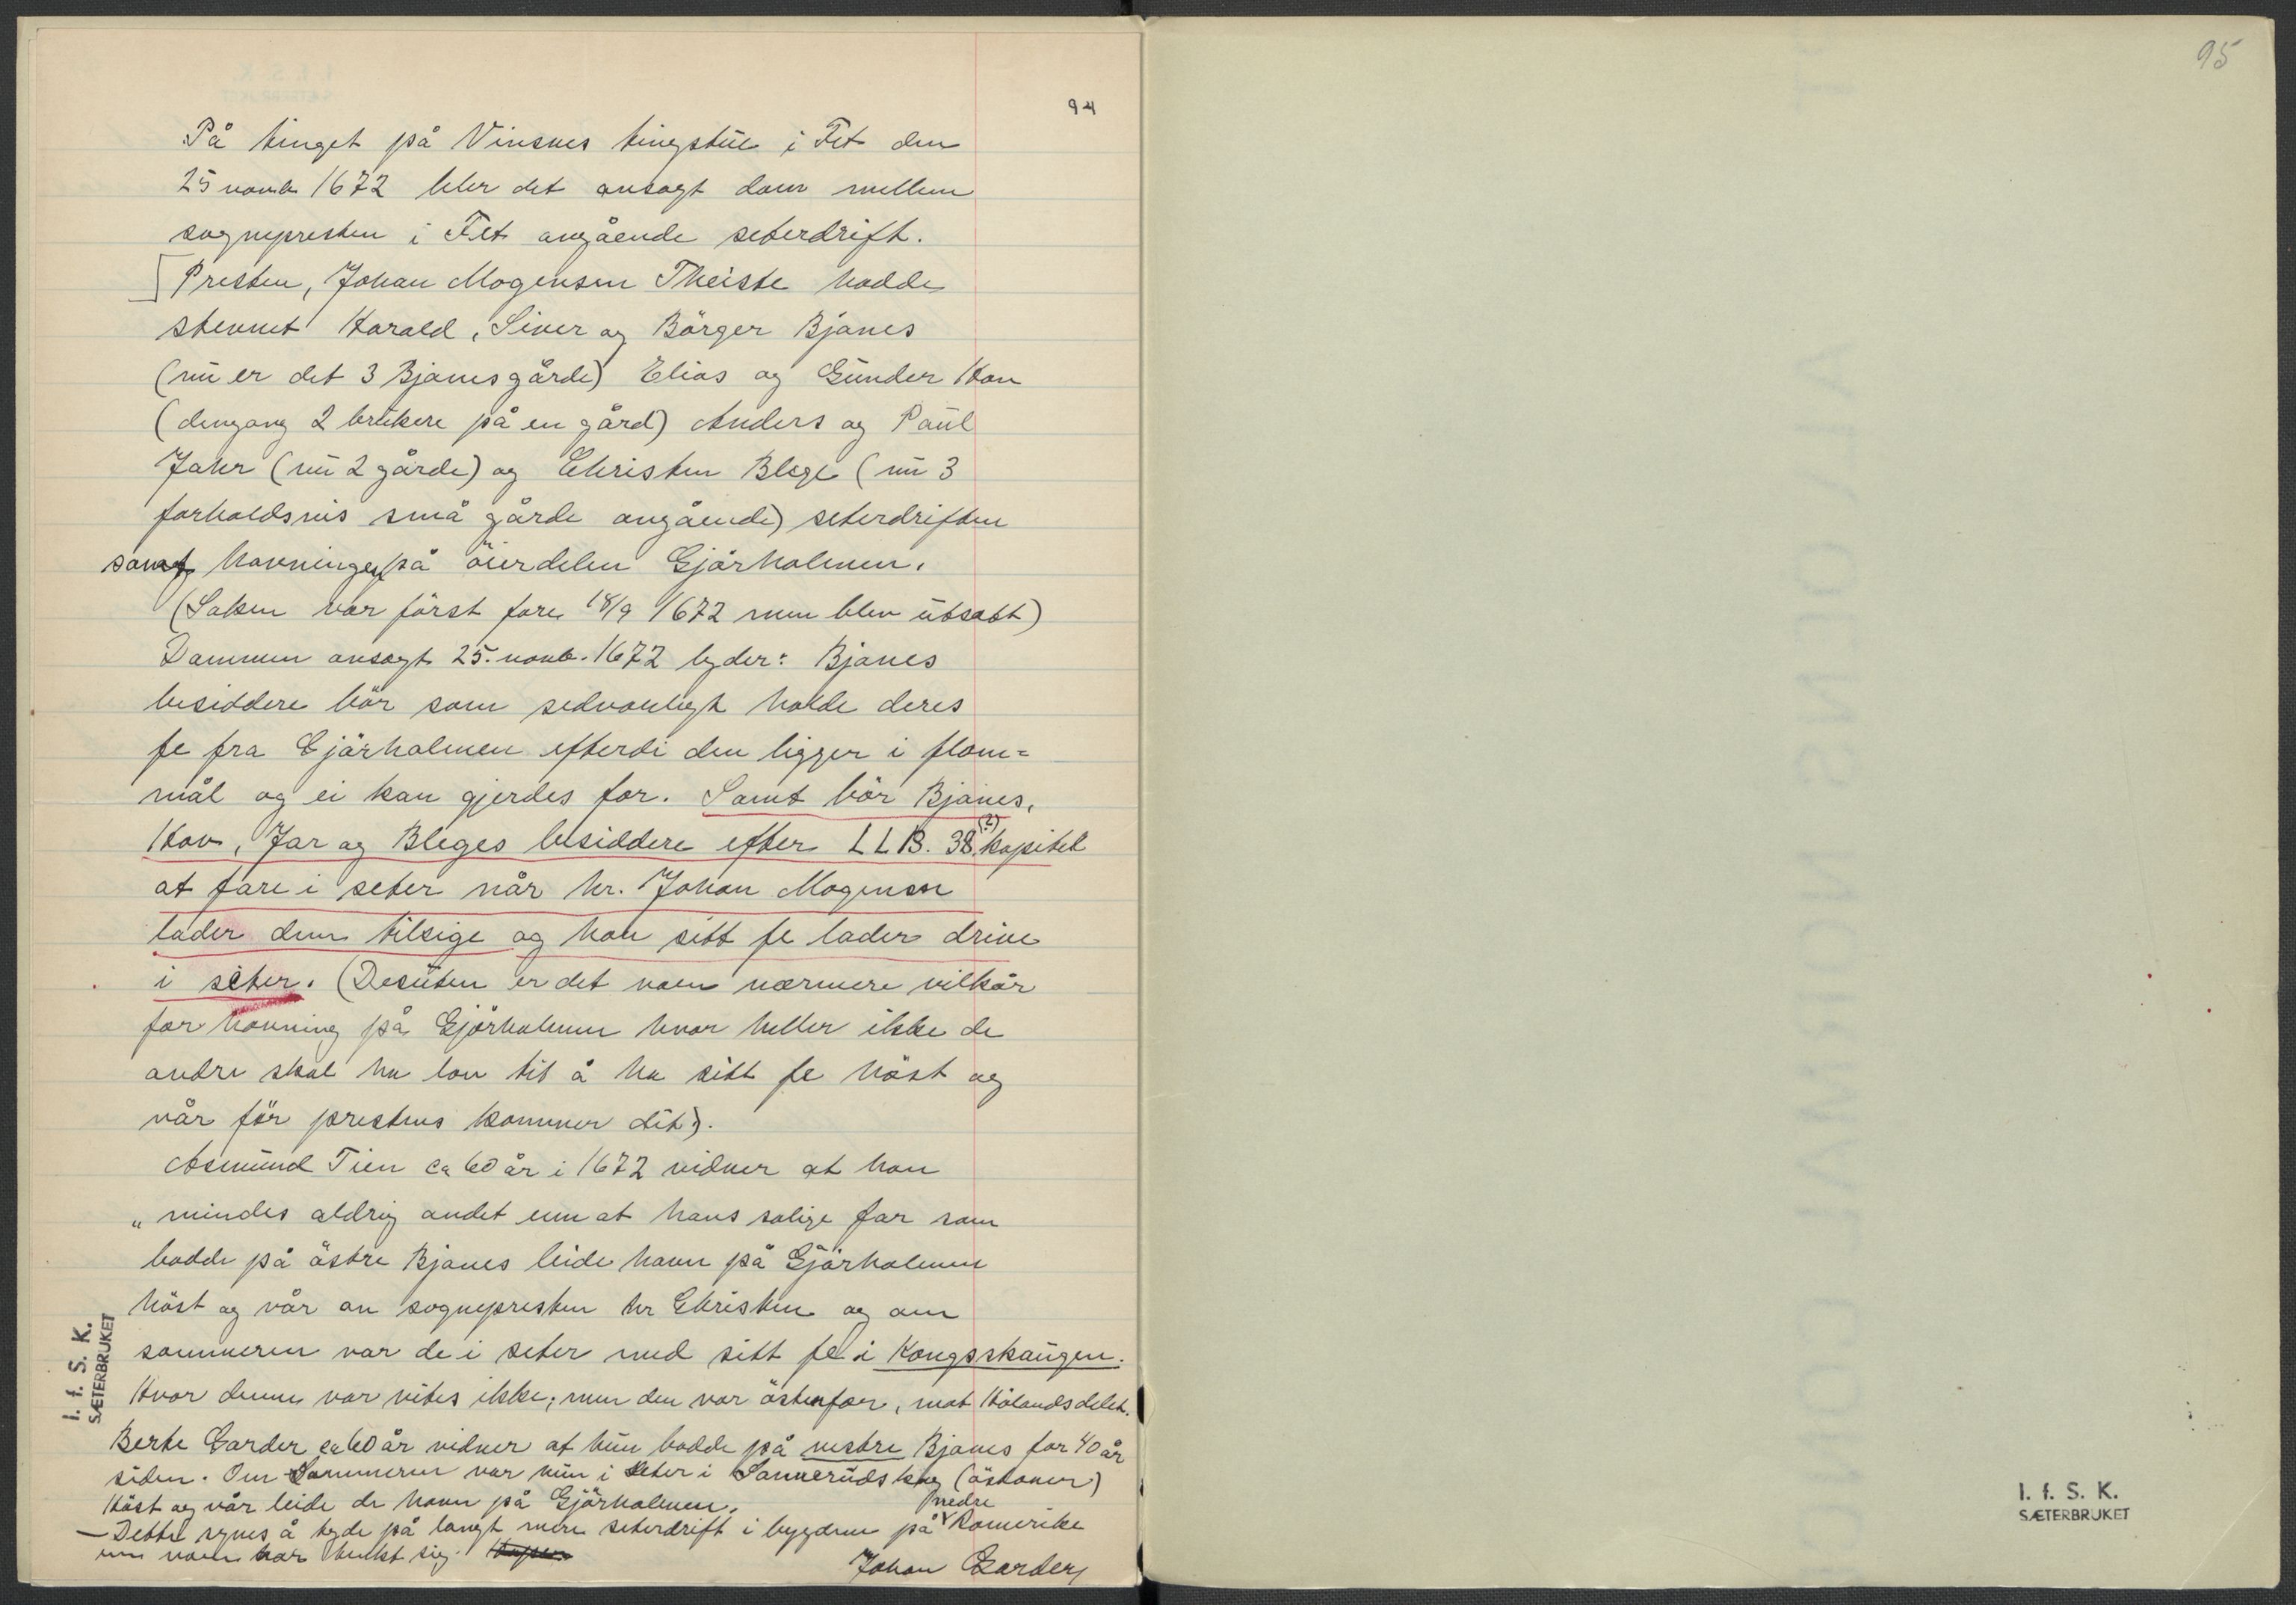 94
På tinget på Vinsnes tingstue i Fet den
25 novemb 1672 blir det avsagt dom mellem
sognepresten i Fet angående seterdrift.
[Presten, Johan Mogensen Theiste hadde
stevnet Harald, Siver og Börger Bjanes
(nu er det 3 Bjanesgårde) Elias og Gunder Hov
(dengang 2 brukere på en gård) Anders og Paul
Jahr (nu 2 gårde) og Christen Blege (nu 3
forholdsvis små gårde angående) seterdriften
samt havningen på öierdelen Gjörholmen.
(Saken var först fore 18/9 1672 men blev utsatt)
Dommen avsagt 25. novb. 1672 lyder: Bjanes
besiddere bör som sedvanligt holde deres
fe fra Gjörholmen efterdi den ligger i flom=
mål og ei kan gjerdes for. Samt bör Bjanes,
Hov, Jar og Bleges besiddere efter LLB. 38(?) kapitel
at fare i seter når hr. Johan Mogensen
lader dem tilsige og han sitt fe lader drive
i seter. (Desuten er det noen nærmere vilkår
for havning på Gjörholmen hvor heller ikke de
andre skal ha lov til å ha sitt fe höst og
vår för prestens kommer dit).
Asmund Tien ca 60 år i 1672 vidner at han
„mindes aldrig andet enn at hans salige far som
bodde på östre Bjanes leide havn på Gjörholmen
höst og vår av sognepresten hr Christen og om
sommeren var de i seter med sitt fe i Kongsskaugen.
Hvor denne var vites ikke; men den var östenfor, mot Hölandsdelet.
Berte Garder ca 60 år vidner at hun bodde på vestre Bjanes for 40 år
siden. Om Sommeren var hun i seter i Sannerudskog (östover)
Höst og vår leide de havn på Gjörholmen.
— Dette synes å tyde på langt mere seterdrift i bygdene på nedre Romerike
enn noen har tenkt sig.
Johan Garder
I. f. S. K.
SÆTERBRUKET
95
I. f. S. K.
SÆTERBRUKET